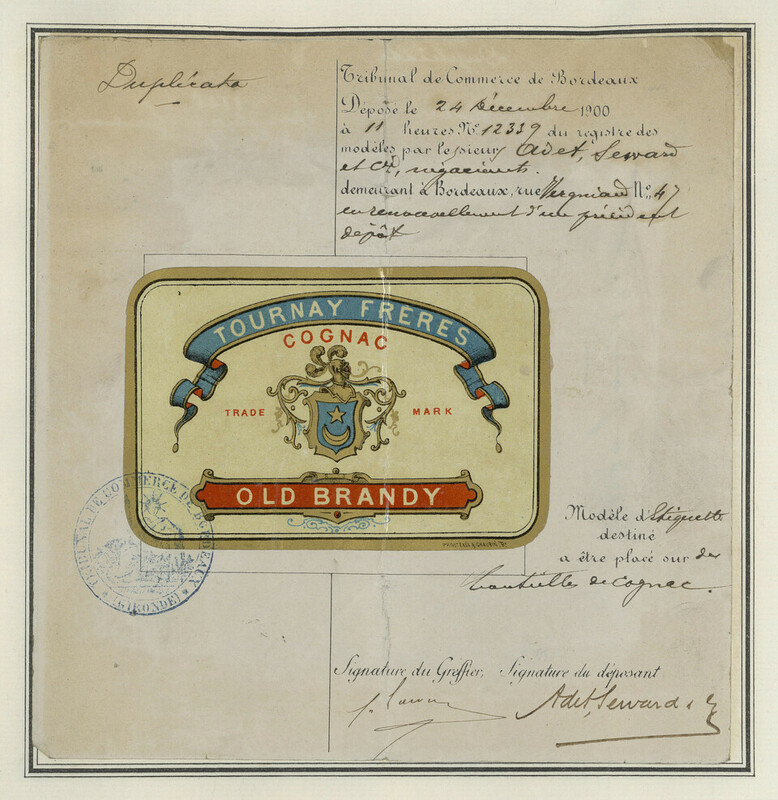 Duplicata
Tribunal de Commerce de Bordeaux
Déposé le 24 Décembre 1900
à 11 heures No. 12339 du registre des
modèles par le sieurs Adet, Seward
et Cie, négociants.
demeurant à Bordeaux, rue Vergniaud No. 47
en renouvellement d'un précédent
dépôt
TOURNAY FRÈRES
COGNAC
TRADE MARK
OLD BRANDY
TRIBUNAL DE COMMERCE DE BORDEAUX
(GIRONDE)
Modèle d'Etiquette
destiné
a être placé sur des
bouteilles de cognac.
Signature du Greffier, Signature du déposant
Adet, Seward &